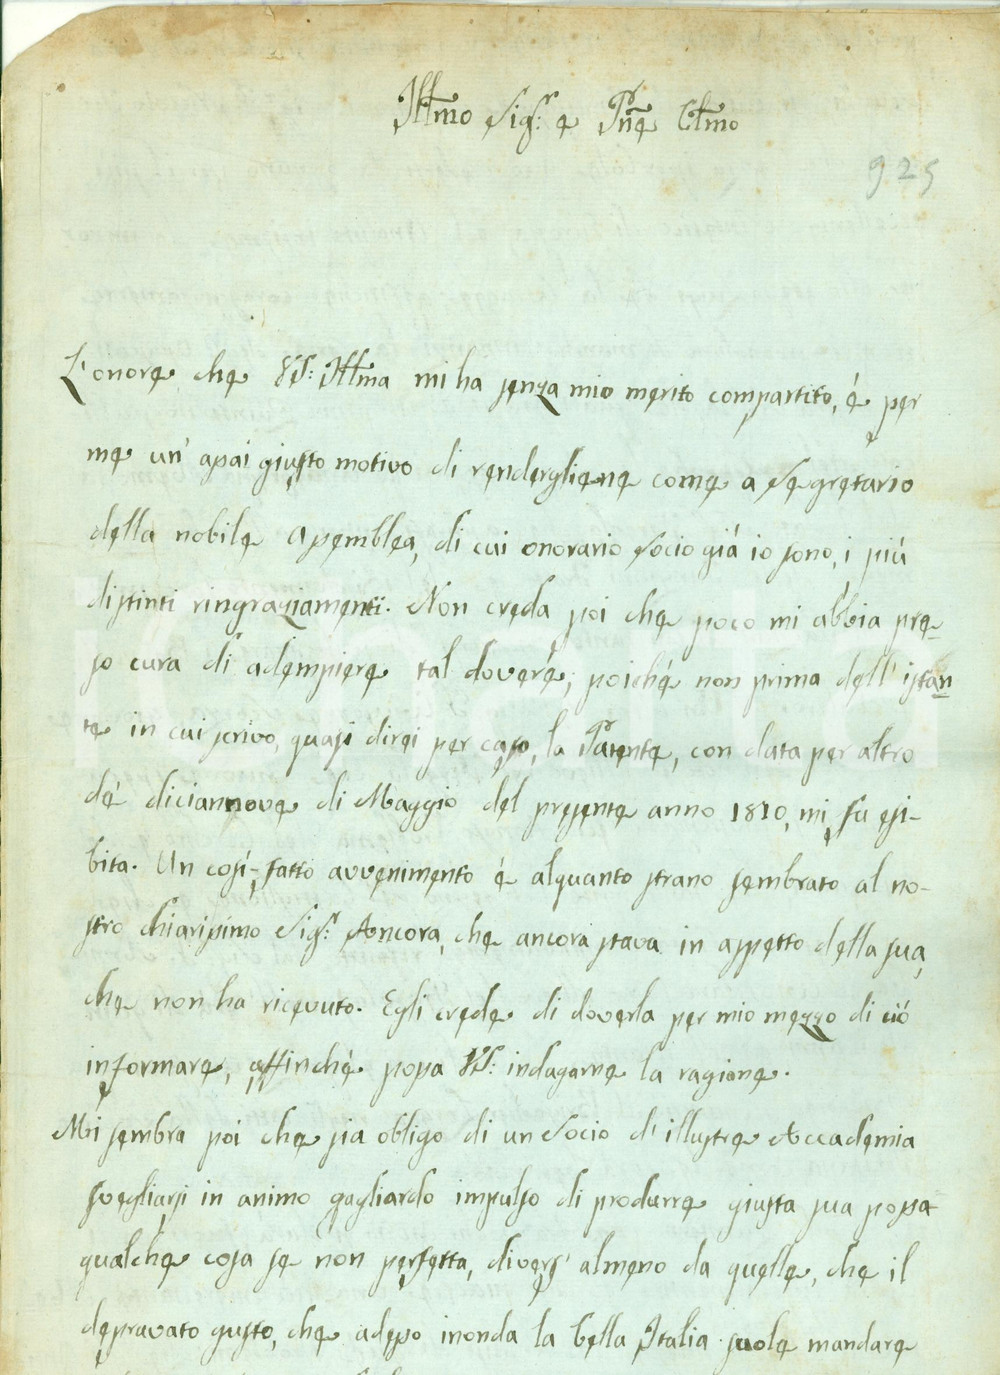 Illmo Sigr: e Prñe Clmo
925
L'onore che VS: Illma mi ha senza mio merito compartito, é per
me un' assai giusto motivo di rendergliene come a Segretario
della nobile Assemblea, di cui onorario Socio giá io sono, i piú
distinti ringraziamenti. Non creda poi che poco mi abbia pre-
so cura di adempiere tal dovere; poiché non prima dell' istan
te in cui scrivo, quasi direi per caso, la Patente, con data per altro
dé diciannove di Maggio del presente anno 1810, mi fu esi-
bita. Un cosí-fatto avvenimento é alquanto strano sembrato al no-
stro chiarissimo Sigr: Ancora, che ancora stava in aspetto della sua,
che non ha ricevuto. Egli crede di doverla per mio mezzo di ció
informare, affinché possa VS: indagarne la ragione.
Mi sembra poi che sia obligo di un Socio d' illustre Accademia
svegliarsi in animo gagliardo impulso di produrre giusta sua possa
qualche cosa se non perfetta, divers' almeno da quelle, che il
depravato gusto, che adesso inonda la bella Italia suole mandare